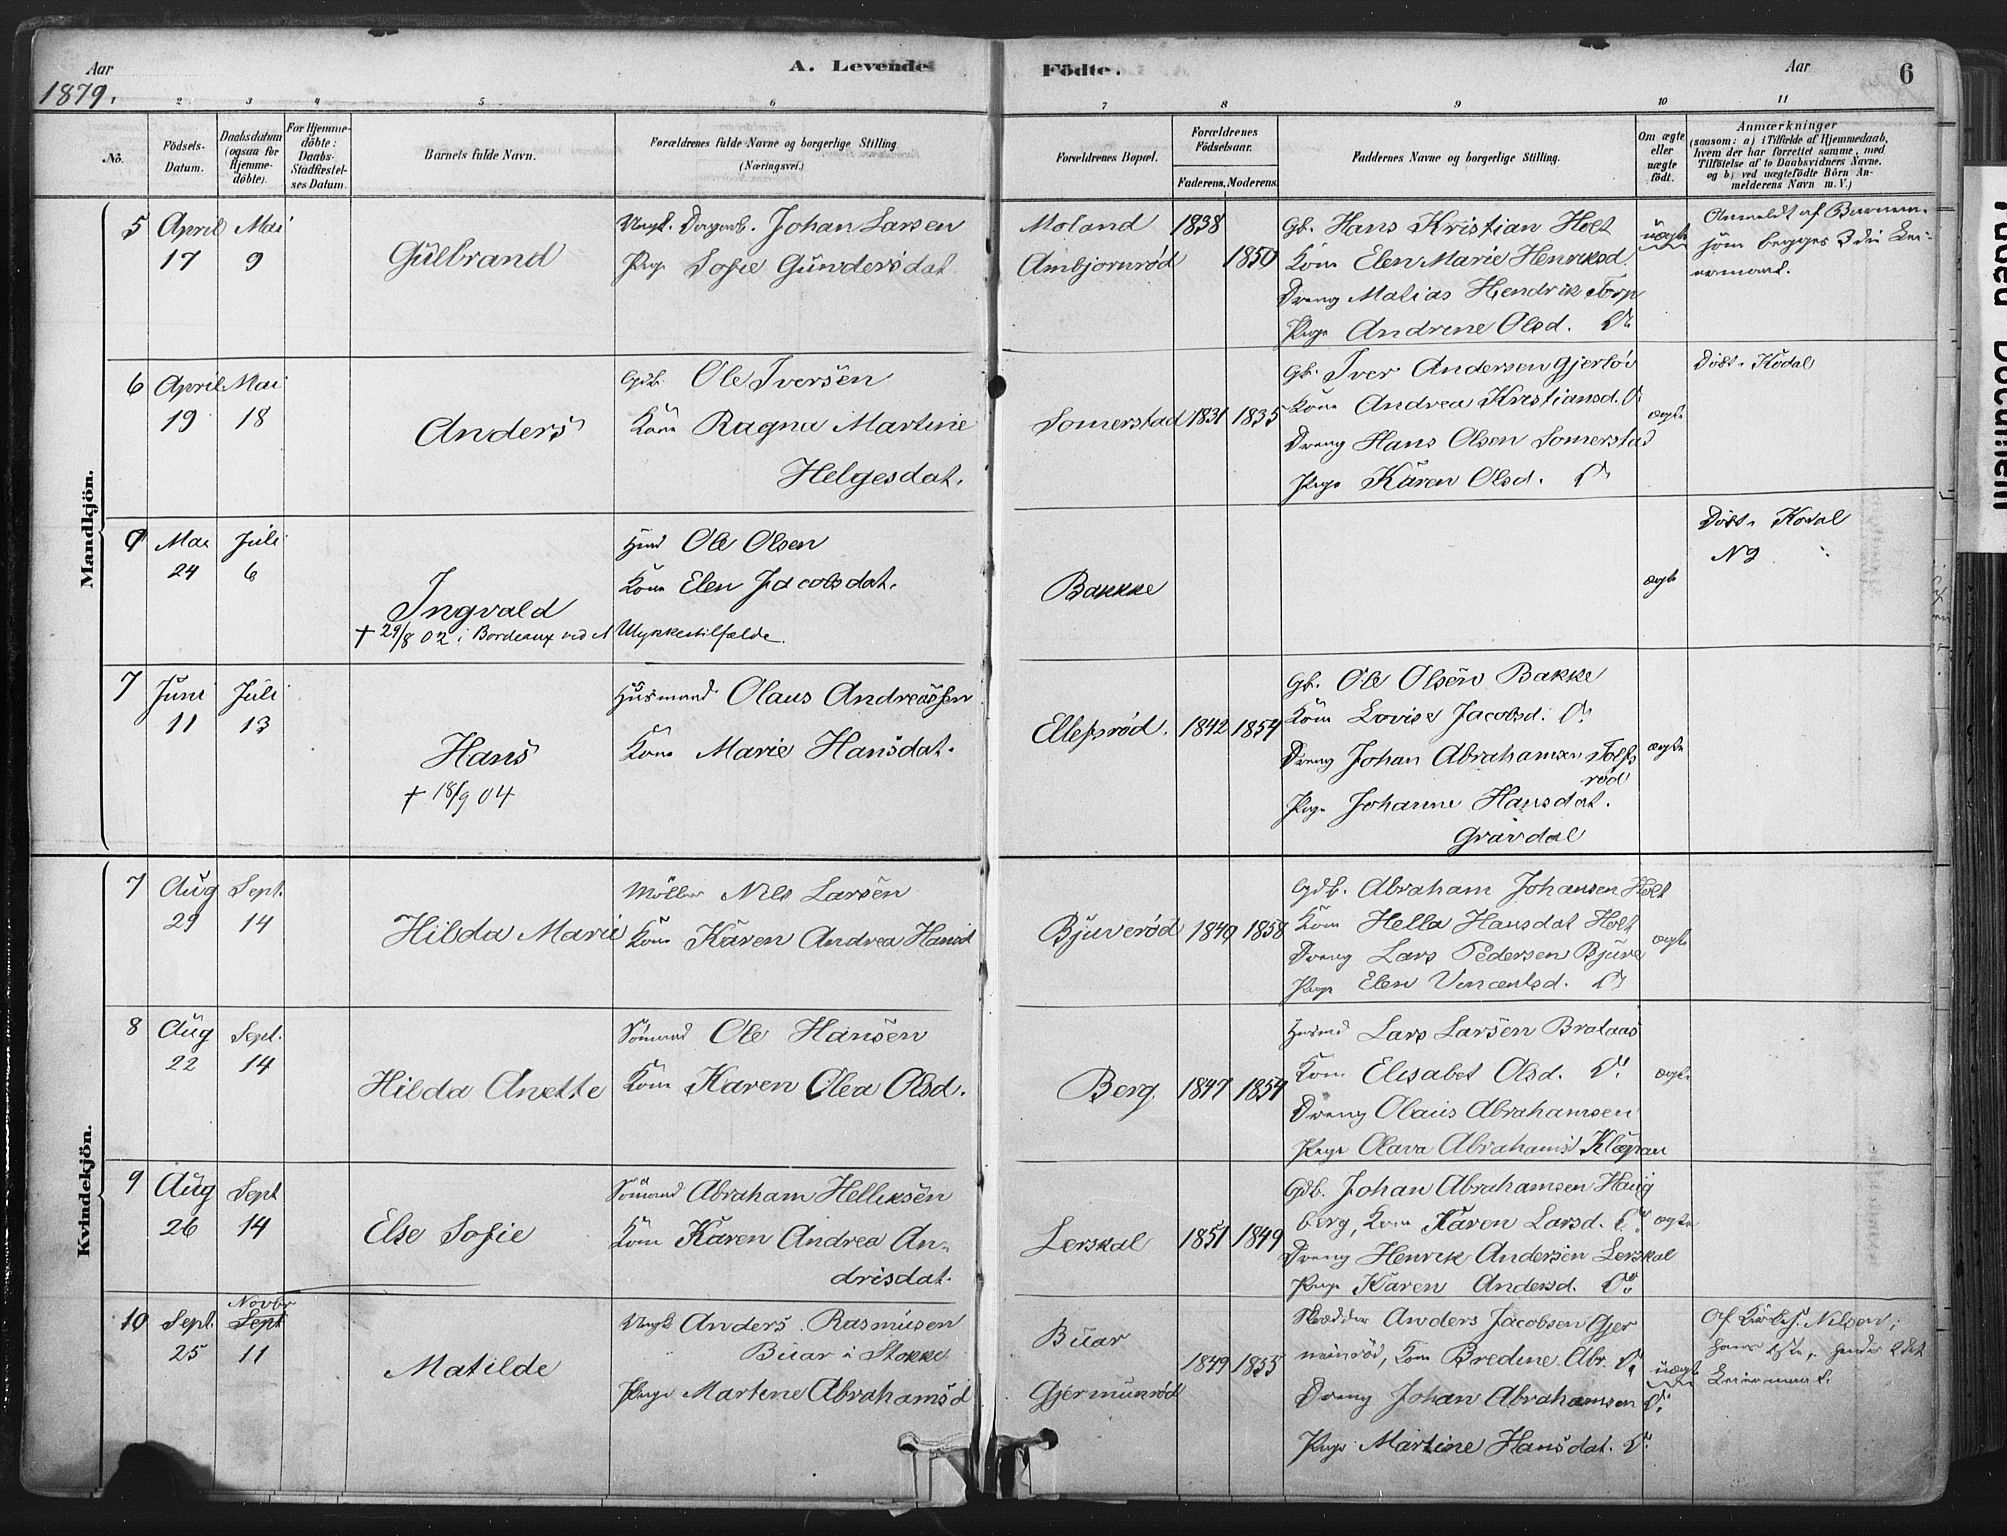 Aar 1879.
A. Levende Födte.
Aar
6
1 2 3 4 5 6 7 8 9 10 11
No.
Födsels-Datum.
Daabsdatum (ogsaa for Hjemme-döbte).
For Hjemme-döbte: Daabs-Stadfæstelses Datum.
Barnets fulde Navn.
Forældrenes fulde Navne og borgerlige Stilling (Næringsvei.)
Forældrenes Bopæl.
Forældrenes Födselsaar.
Faderens. Moderens.
Faddernes Navne og borgerlige Stilling.
Om ægte eller uægte födt.
Anmærkninger (saasom: a) i Tilfælde af Hjemmedaab, hvem der har forrettet samme, med Tilföielse af to Daabsvidners Navne. og b) ved uægtefödte Börn Anmelderens Navn m. V.)
Mandkjön.
5 April 17 Mai 9
Gülbrand
Ungk. Dagarb. Johan Larsen
Pige Sofie Gündersdat.
Moland 1838
Ambjornrød 1850
Gb. Hans Kristian Holt
Kone Elen Marie Henriksd.
Dreng Matias Hendrik Torp
Pige Andrine Olsd. Do
üægte
Anmeldt af Barnem.
som begges 3die Lei-
ermaal.
6 April 19 Mai 18
Anders
Gdb. Ole Iversen
Kone Ragna Martine
Helgesdat.
Somerstad 1831 1835
Gb. Iver Andersen Gjerløv
Kone Andrea Kristiansd. Do
Dreng Hans Olsen Somerstad
Pige Karen Olsd. Do
ægte
Døbt i Kodal
Mai 24 Juli 6
Ingvald
† 29/8 02 i Bordeaux ved Ulykkestilfælde.
Ole Olsen
Kone Elen Jacobsdat.
Bakke
ægte
Døbt i Kodal
7 Juni 11 Juli 13
Hans
† 18/9 04
Husmand Olaus Andreassen
Kone Marie Hansdat.
Ellefsrød. 1842 1854
Gb. Ole Olsen Bakke
Kone Lovise Jacobsd. Do
Dreng Johan Abrahamsen Tolfs
rød
Pige Johanne Hansdat.
Gravdal
ægte
Kvindekjön.
7 Aug 29 Sept. 14
Hilda Marie
Møller Nils Larsen
Kone Karen Andrea Hansd
Bjuverød 1849 1858
Gdb. Abraham Johansen Holt
Kone Hella Hansdat Holt
Dreng Lars Pedersen Bjure
Pige Elen Vincentsd. Do
ægte
8 Aug 22 Sept. 14
Hilda Anette
Sømand Ole Hansen
Kone Karen Olea Olsd.
Berg. 1847 1854
Husmd Lars Larsen Brataas
Kone Elisabet Olsd. Do
Dreng Olaus Abrahamsen
Pige Olava Abrahamsd Klæpan
ægte
9 Aug 26 Sept 14
Else Sofie
Sømand Abraham Helliksen
Kone Karen Andrea An-
drisdat.
Lerskal 1851 1849
Gdb. Johan Abrahamsen Haug
berg, Kone Karen Larsd. Do
Dreng Henrik Andersen Lerskal
Pige Karen Andersd. Do
ægte
10 Sept. 25 Novbr Sept 11
Matilde
Ungk Anders Rasmusen
Buar i Stokke
Pige Martine Abrahamsd
Buar
Gjermunrød
1849 1855
Skrædder Anders Jacobsen Gjer
munrød, Kone Bredine Abr. Do
Dreng Johan Abrahamsen Do
Pige Martine Hansdat. Do
uægte
Af Kirkes. Nilsen;
hans 1ste, hendes 2det
Leiermaal.